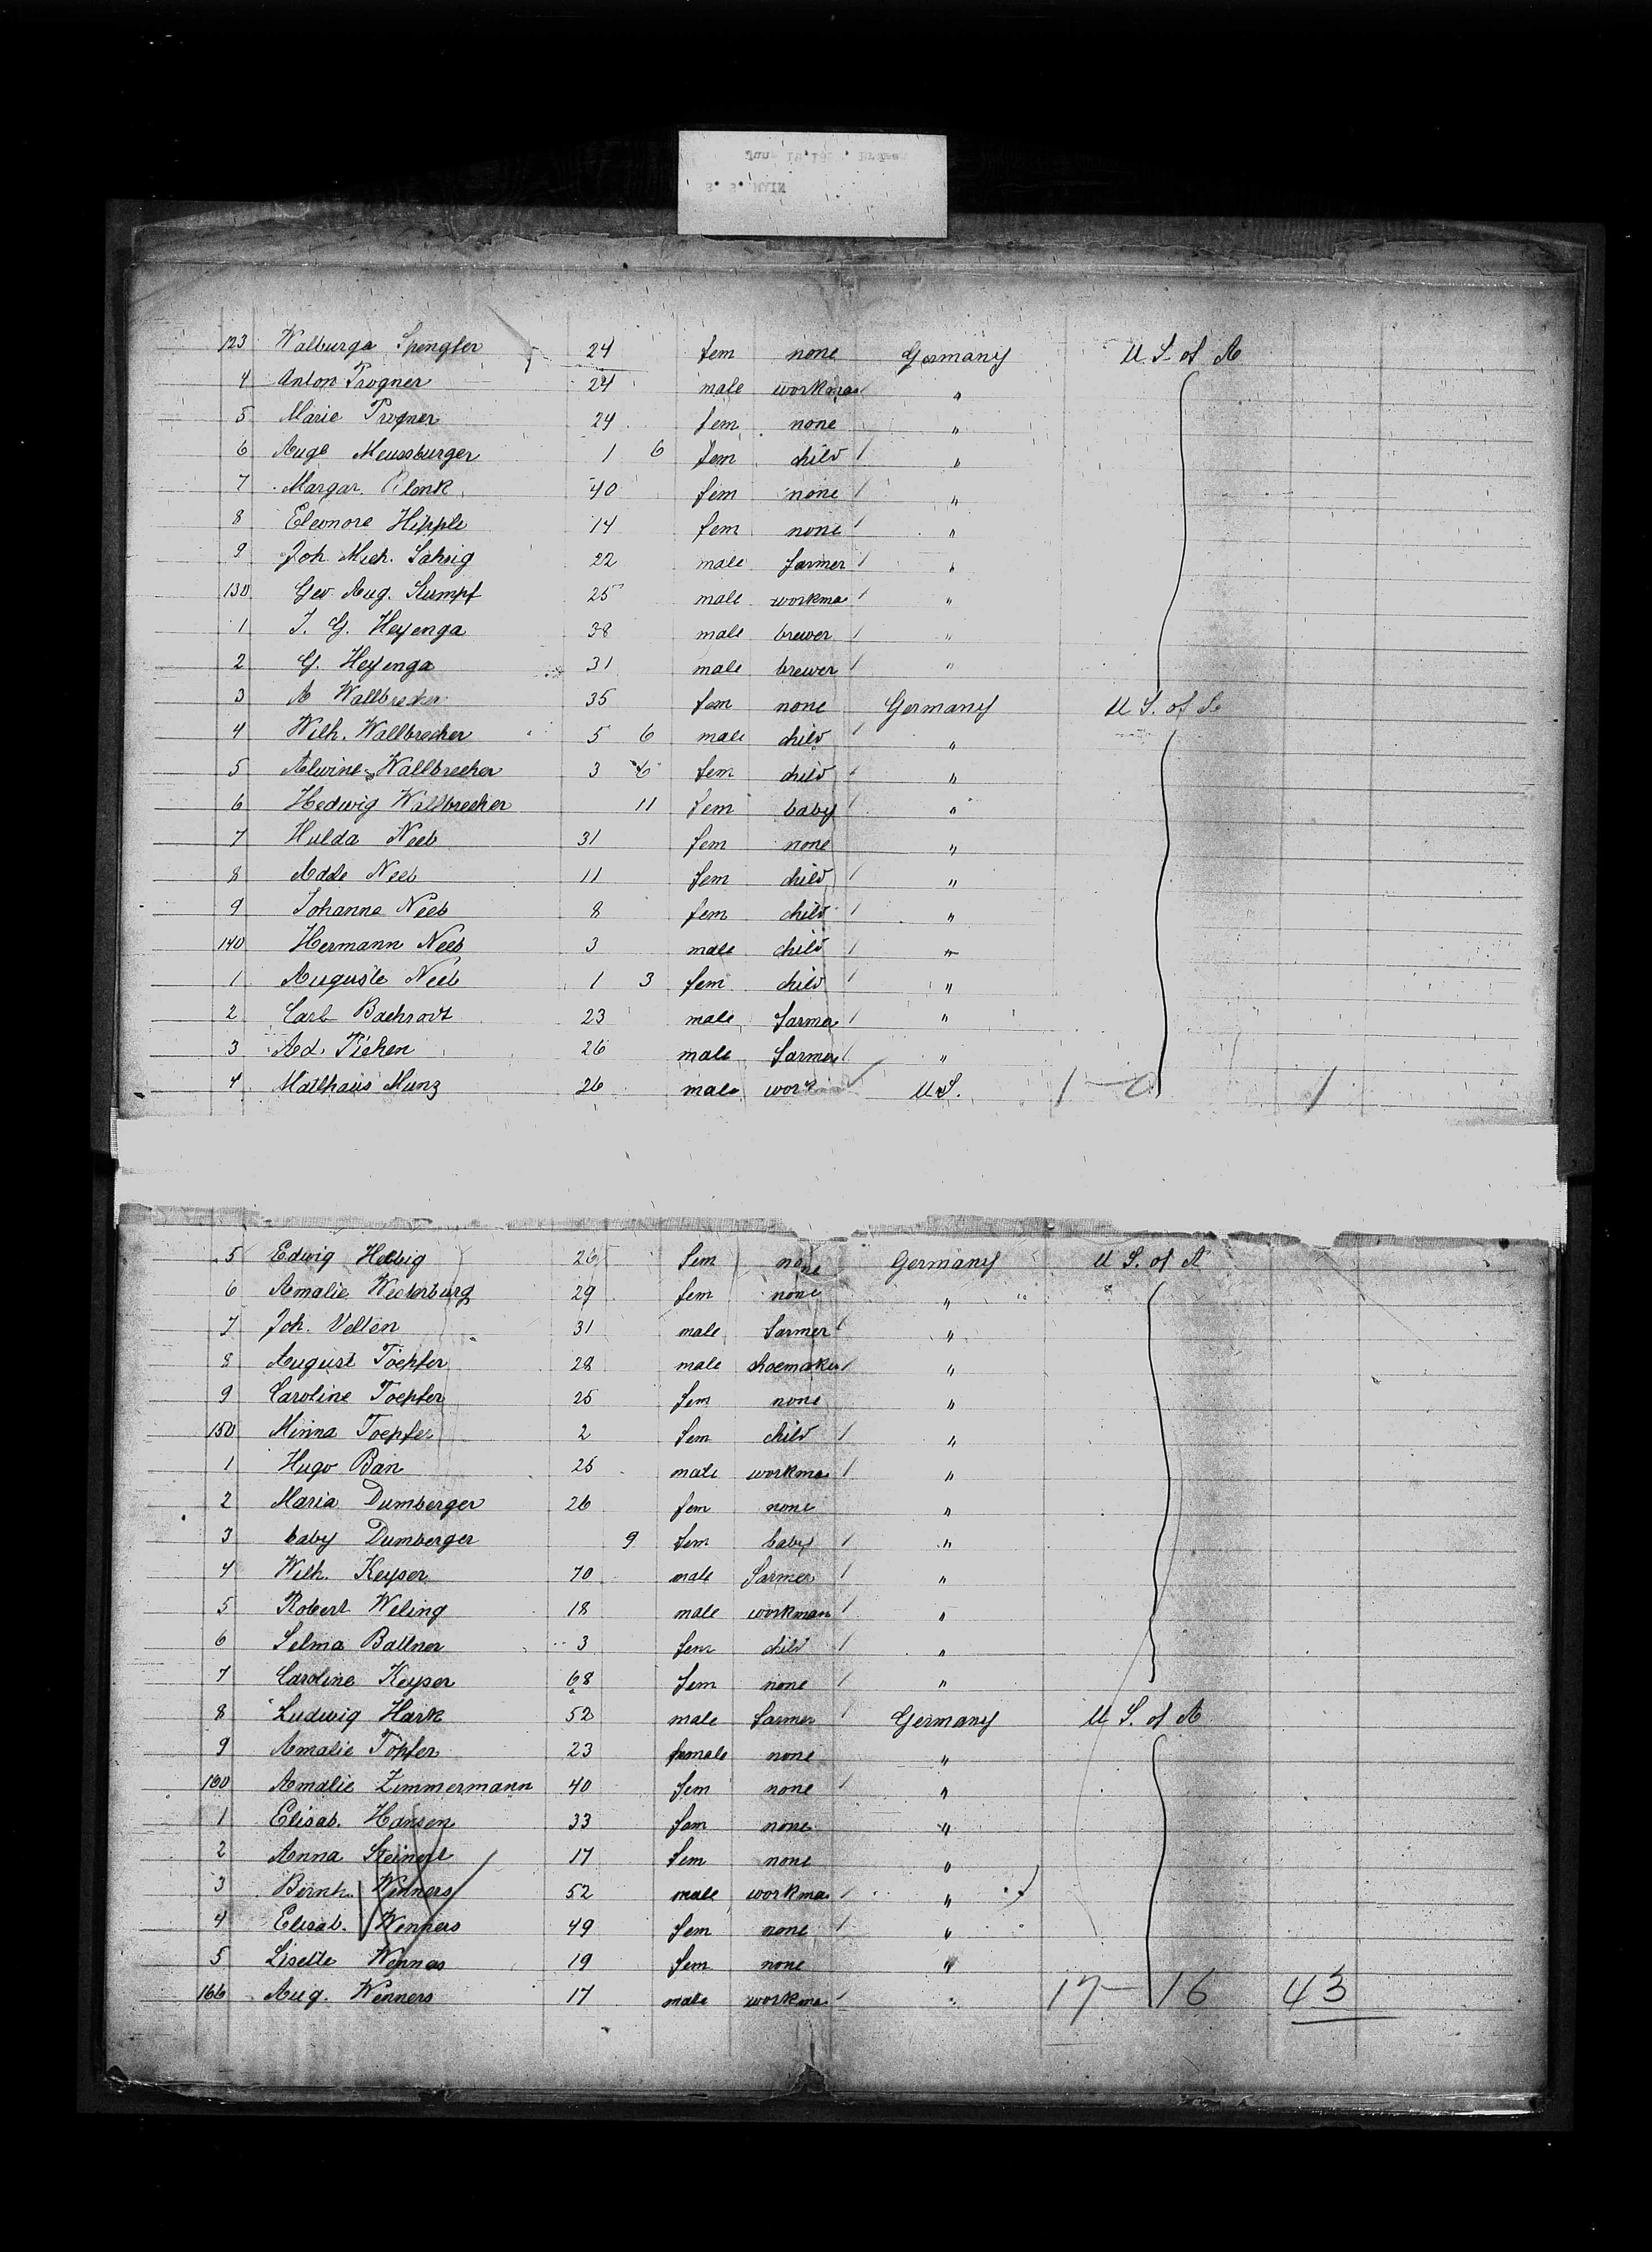 S. S. MAIN
123 Walburga Spengler 24 fem none Germany U.S. of A
4 Anton Progner 24 male workman "
5 Marie Progner 24 fem none "
6 Auge Meussburger 1 6 fem child "
7 Margar. Blank 40 fem none "
8 Eleonore Hipple 14 fem none "
9 Joh. Mich. Sahrig 22 male farmer "
130 Geo Aug. Stumpf 25 male workma "
1 J. G. Heyenga 38 male brewer "
2 G. Heyenga 31 male brewer "
3 A Wallbrecher 35 fem none Germany U.S. of A
4 Wilh. Wallbrecher 5 6 male child "
5 Alwine Wallbrecher 3 6 fem child "
6 Hedwig Wallbrecher 11 fem baby "
7 Hulda Neeb 31 fem none "
8 Adele Neeb 11 fem child "
9 Johanna Neeb 8 fem child "
140 Hermann Neeb 3 male child "
1 Auguste Neeb 1 3 fem child "
2 Carl Bachrodt 23 male farmer "
3 Ad. Tiehen 26 male farmer "
4 Mathaus Munz 26 male work U.S. 1 - 0 1
5 Edwig Helbig 26 fem none Germany U.S. of A
6 Amalie Westerburg 29 fem none "
7 Joh. Velten 31 male farmer "
8 August Toepfer 28 male shoemaker "
9 Caroline Toepfer 25 fem none "
150 Minna Toepfer 2 fem child "
1 Hugo Ban 25 male workma "
2 Maria Dumberger 26 fem none "
3 baby Dumberger 9 fem baby "
4 Wilh. Keyser 70 male farmer "
5 Robert Weling 18 male workman "
6 Selma Ballner 3 fem child "
7 Caroline Keyser 68 fem none "
8 Ludwig Hark 52 male farmer Germany U.S. of A
9 Amalie Töpfer 23 female none "
160 Amalie Zimmermann 40 fem none "
1 Elisab. Hansen 33 fem none "
2 Anna Steinert 17 fem none "
3 Bernh. Wenners 52 male workma "
4 Elisab. Wenners 49 fem none "
5 Lisette Wenners 19 fem none "
166 Aug. Wenners 17 male workma " 17 - 16 43